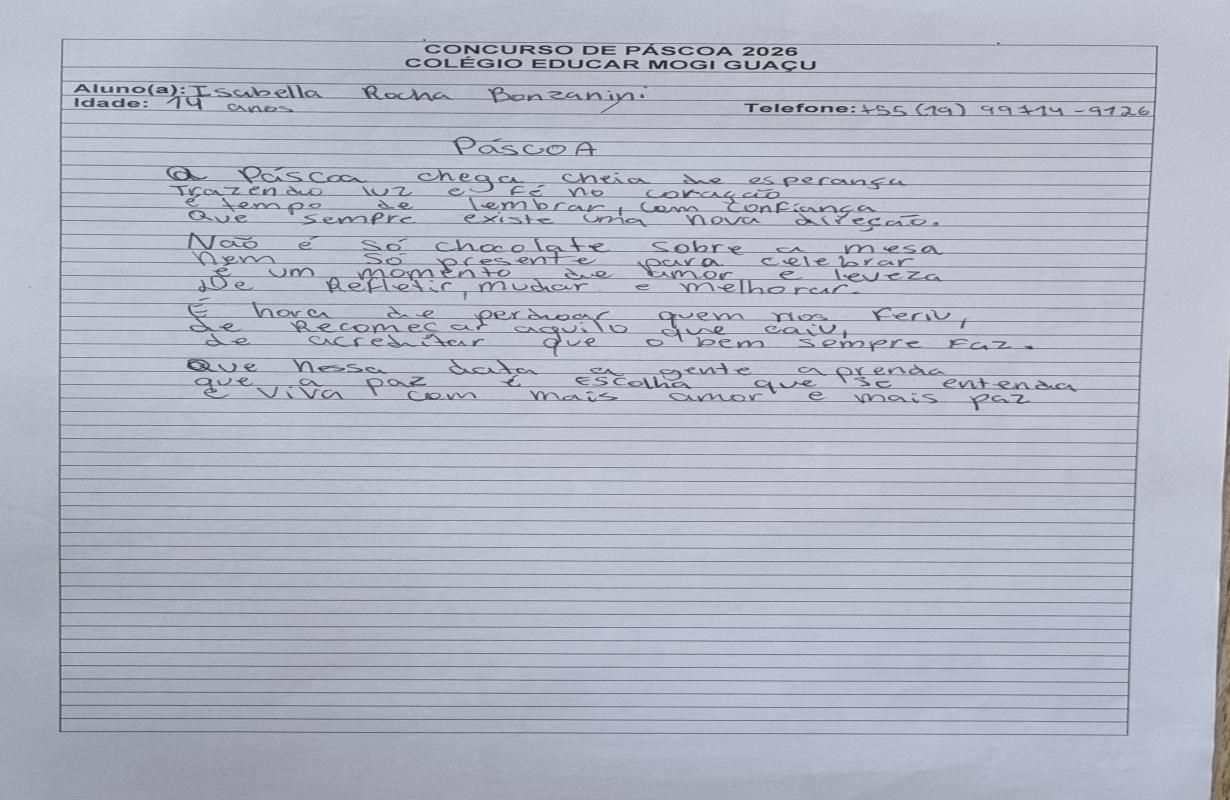 CONCURSO DE PÁSCOA 2026
COLÉGIO EDUCAR MOGI GUAÇU
Aluno(a): Isabella Rocha Bonzanini
Idade: 14 anos
Telefone: +55 (19) 99714-9126
PáscoA
A Páscoa chega cheia de esperança
Trazendo luz e fé no coração
é tempo de lembrar, com confiança
Que sempre existe uma nova direção.
Naõ é só chocolate sobre a mesa
Nem só presente para celebrar
é um momento de amor e leveza
De Refletir, mudar e melhorar.
É hora de perdoar quem nos feriu,
de Recomeçar aquilo que caiu,
de acreditar que o bem sempre faz.
Que nessa data a gente aprenda
que a paz é escolha que se entenda
e viva com mais amor e mais paz